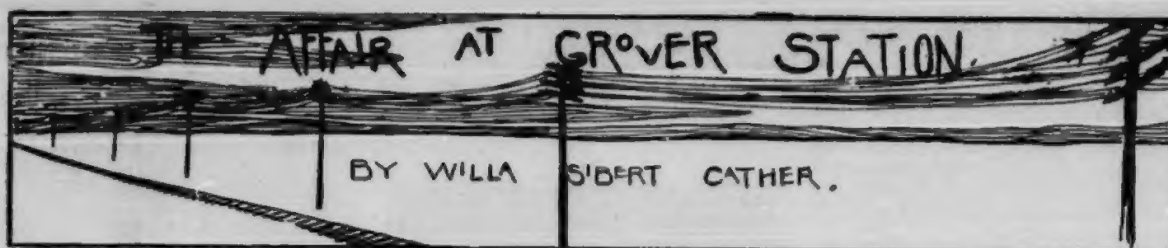 THE AFFAIR AT GROVER STATION.
BY WILLA SIBERT CATHER.